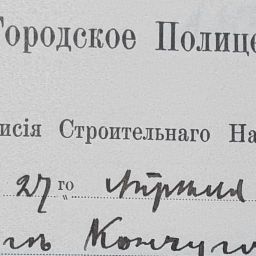 Городское Полице
исія Строительнаго На
27го Апреля